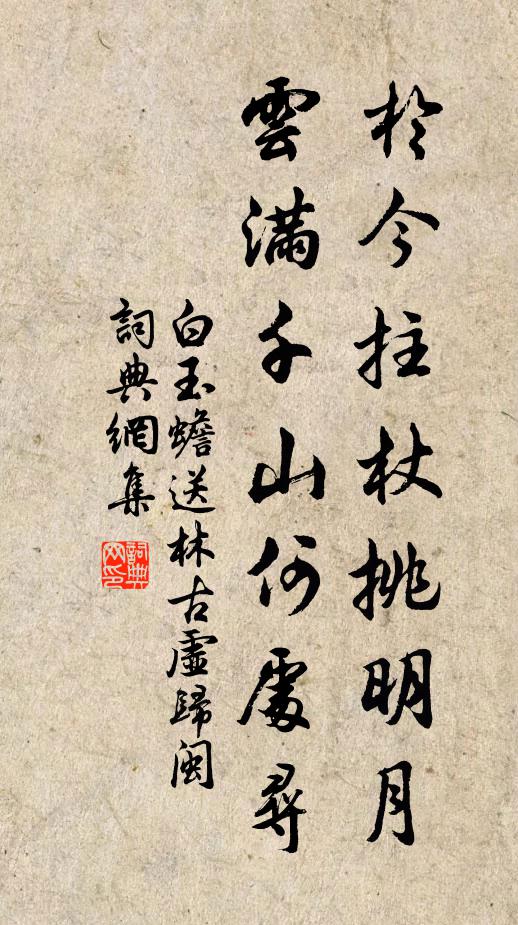 於今拄杖挑明月
雲滿千山何處尋
白玉蟾送林古虛歸閩
詞典網集
詞典網印